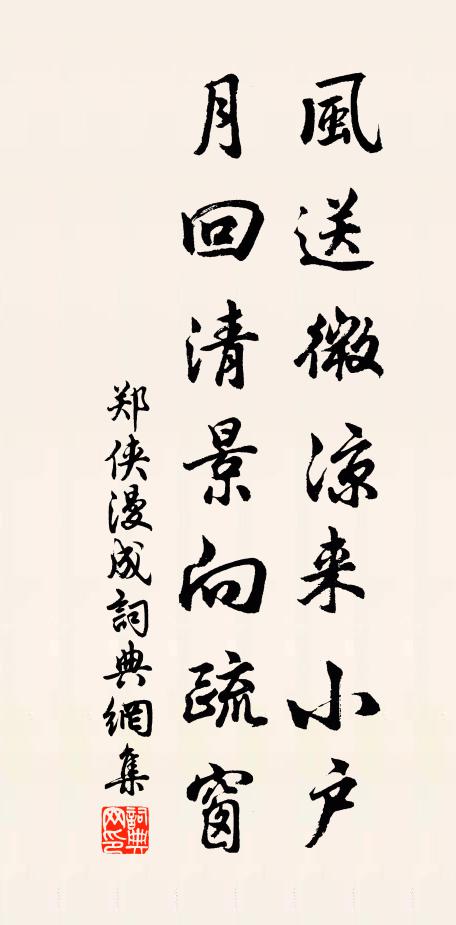 風送微涼来小户
月回清景向疏窗
郑侠漫成詞典網集
詞典网印